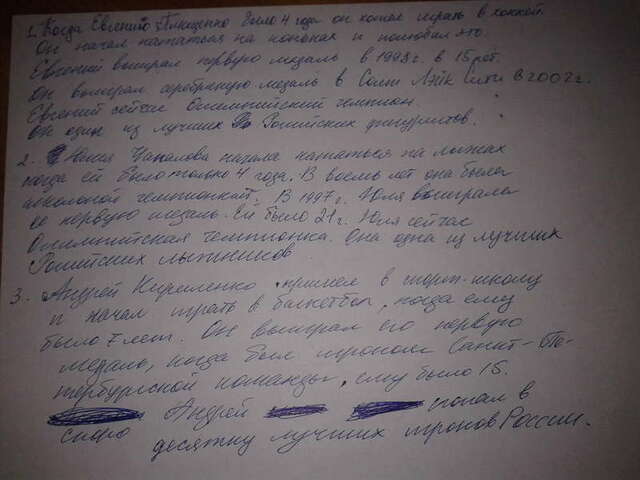 1. Когда Евгению Плющенко было 4 года он хотел играть в хоккей.
Он начал кататься на коньках и полюбил это.
Евгений выиграл первую медаль в 1998г. в 15 лет.
Он выиграл серебряную медаль в Солт Лэйк Сити в 2002г.
Евгений сейчас Олимпийский чемпион.
Он один из лучших Российских фигуристов.
2. Юлия Чепалова начала кататься на лыжах
когда ей было только 4 года. В восемь лет она была
школьной чемпионкой. В 1997г. Юля выиграла
ее первую медаль. Ей было 21г. Юля сейчас
Олимпийская чемпионка. Она одна из лучших
Российских лыжников.
3. Андрей Кириленко пришел в спорт-школу
и начал играть в баскетбол, когда ему
было 7 лет. Он выиграл его первую
медаль, когда был игроком Санкт-Пе-
тербургской команды, ему было 15.
Андрей попал в
скоро десятку лучших игроков России.